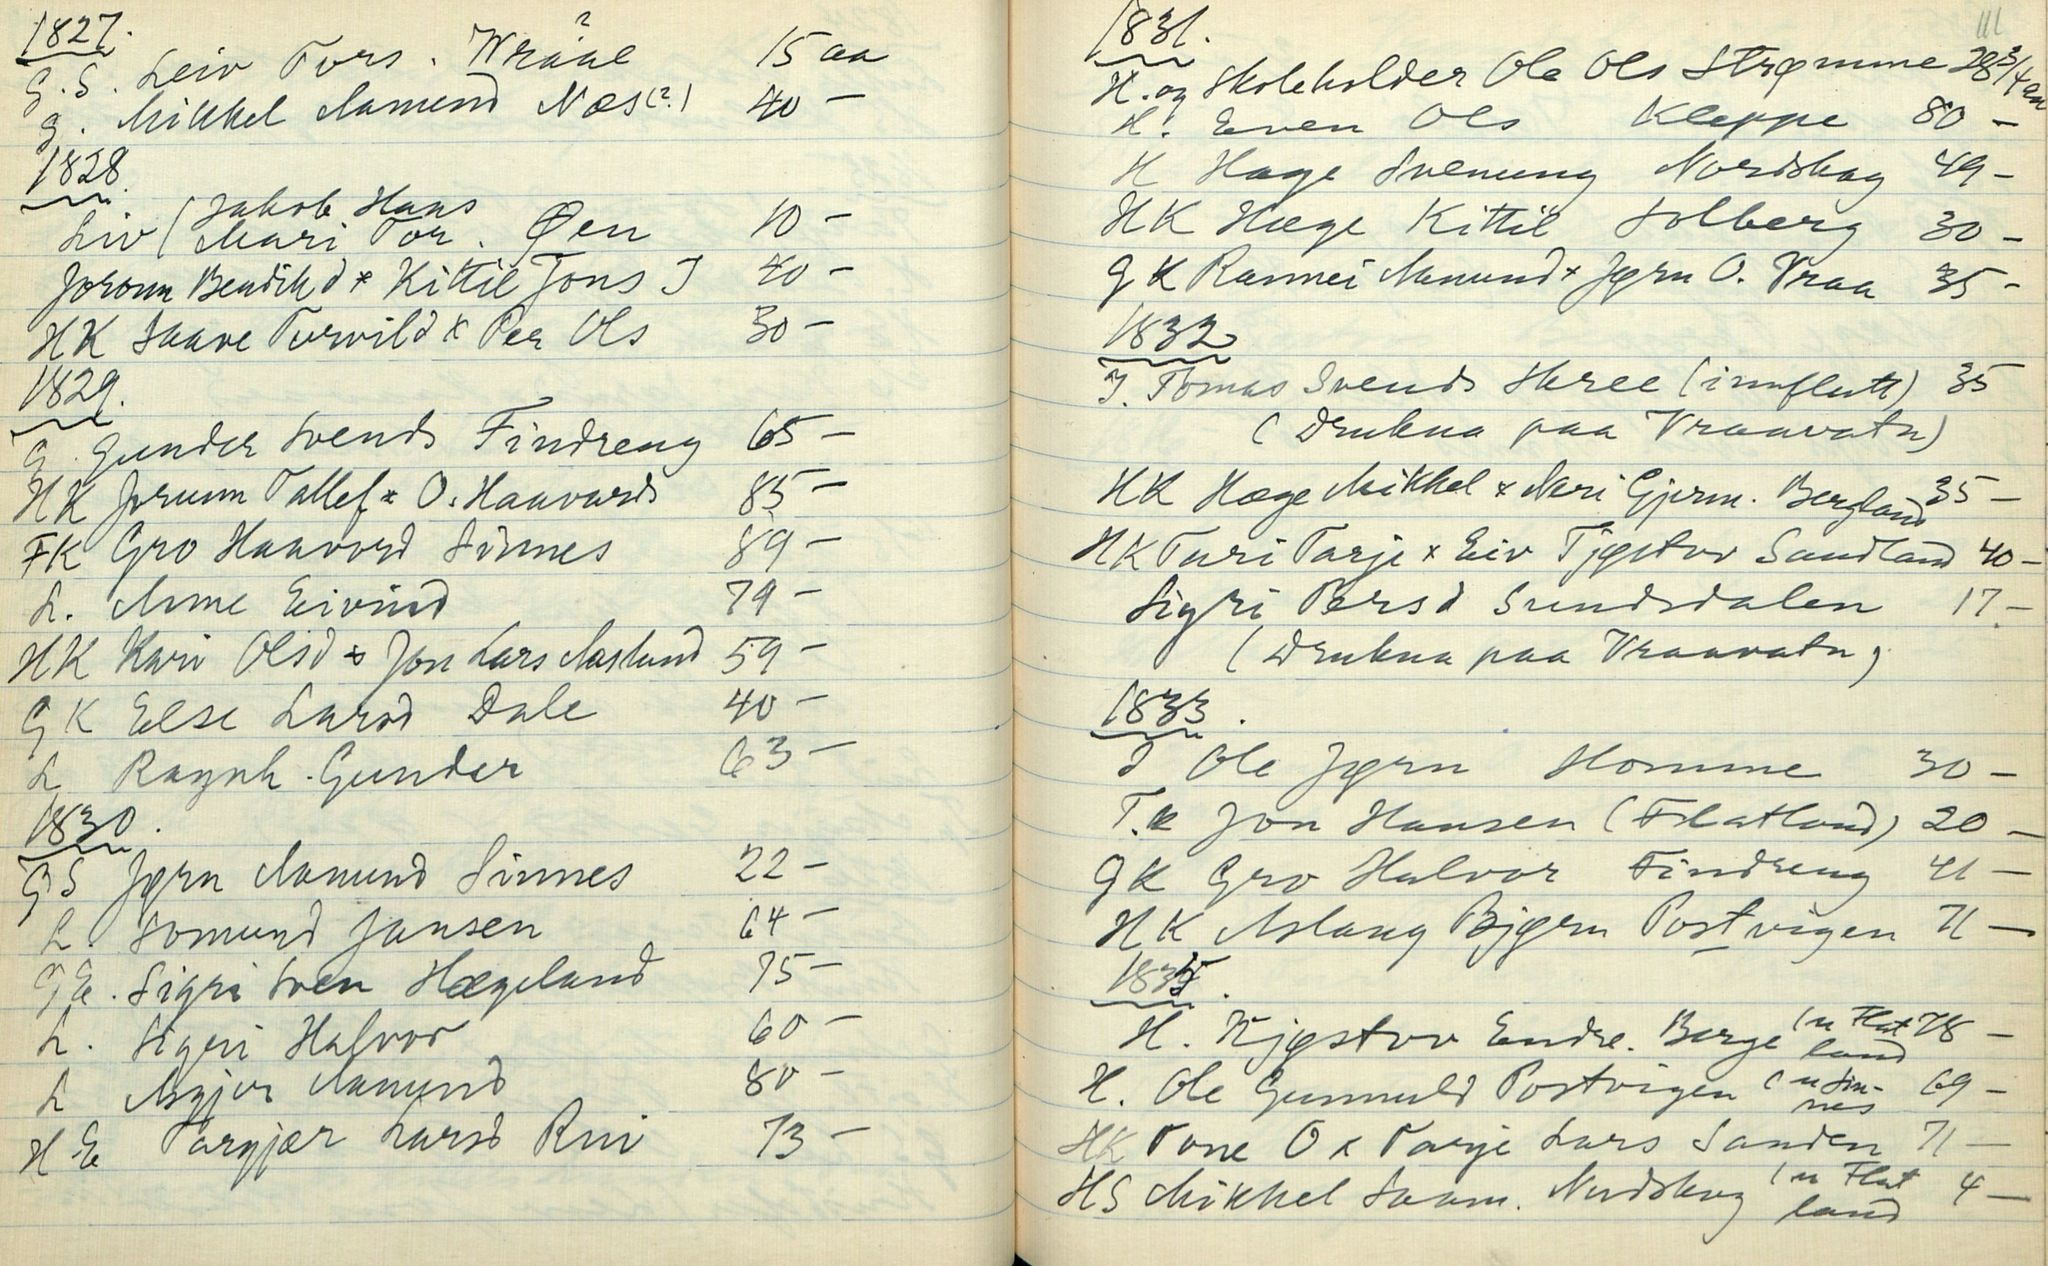 1827.
G.S. Leiv Tors. Wraal ? 15 aa
G. Mikkel Aamund Næs (?) 40 -
1828.
Liv ( Jakob Hans
Mari Tor. Øen 10 -
Joronn Bendikd x Kittil Jons J 40 -
HK Saave Torvild x Per Ols 30 -
1829.
G. Gunder Svends Findreng 65 -
HK Jorunn Tallef x O. Haavards 85 -
FK Gro Haavord Sinnes 89 -
L. Anne Eivind 79 -
HK Kari Olsd x Jon Lars Aaslund 59 -
GK Else Larsd Dale 40 -
L Raynh. Gunder 63 -
1830.
GS Jørn Aamund Sinnes 22 -
L. Somund Jansen 64 -
GE. Sigri Sven Hægeland 75 -
L. Sigri Halvor 60 -
L Asgjer Aamund 80 -
HE Torgjær Larsd Rui 73 -
111
1831.
H. og Skoleholder Ole Ols Strømme 28 3/4 aa
H. Even Ols Kleppe 80 -
H Hage Svenung Nordskog 49 -
HK Hæge Kittil Solberg 30 -
GK Rannei Aamund x Jørn O. Vraa 35 -
1832
I. Tomas Svends Skree (innflutt) 35
( Drukna paa Vraavatn)
HK Hæge Mikkel x Neri Gjerm. Bergland 35 -
HK Turi Tarje x Eiv Tjøstov Sandland 40 -
Sigri Persd Sundsdalen 17 -
( Drukna paa Vraavatn)
1833.
I Ole Jørn Homme 30 -
T.K Jon Hansen (Flatland) 20 -
GK Gro Halvor Findreng 41 -
HK Aslaug Bjørn Postvigen 71 -
1835.
H. Kjøstov Endre. Berge (u Flatland 78 -
H. Ole Gunnuld Postvigen (u Sinnes 69 -
HK Tone O x Tarje Lars Sanden 71 -
HS Mikkel Saam. Nordskog (u Flatland 4 -